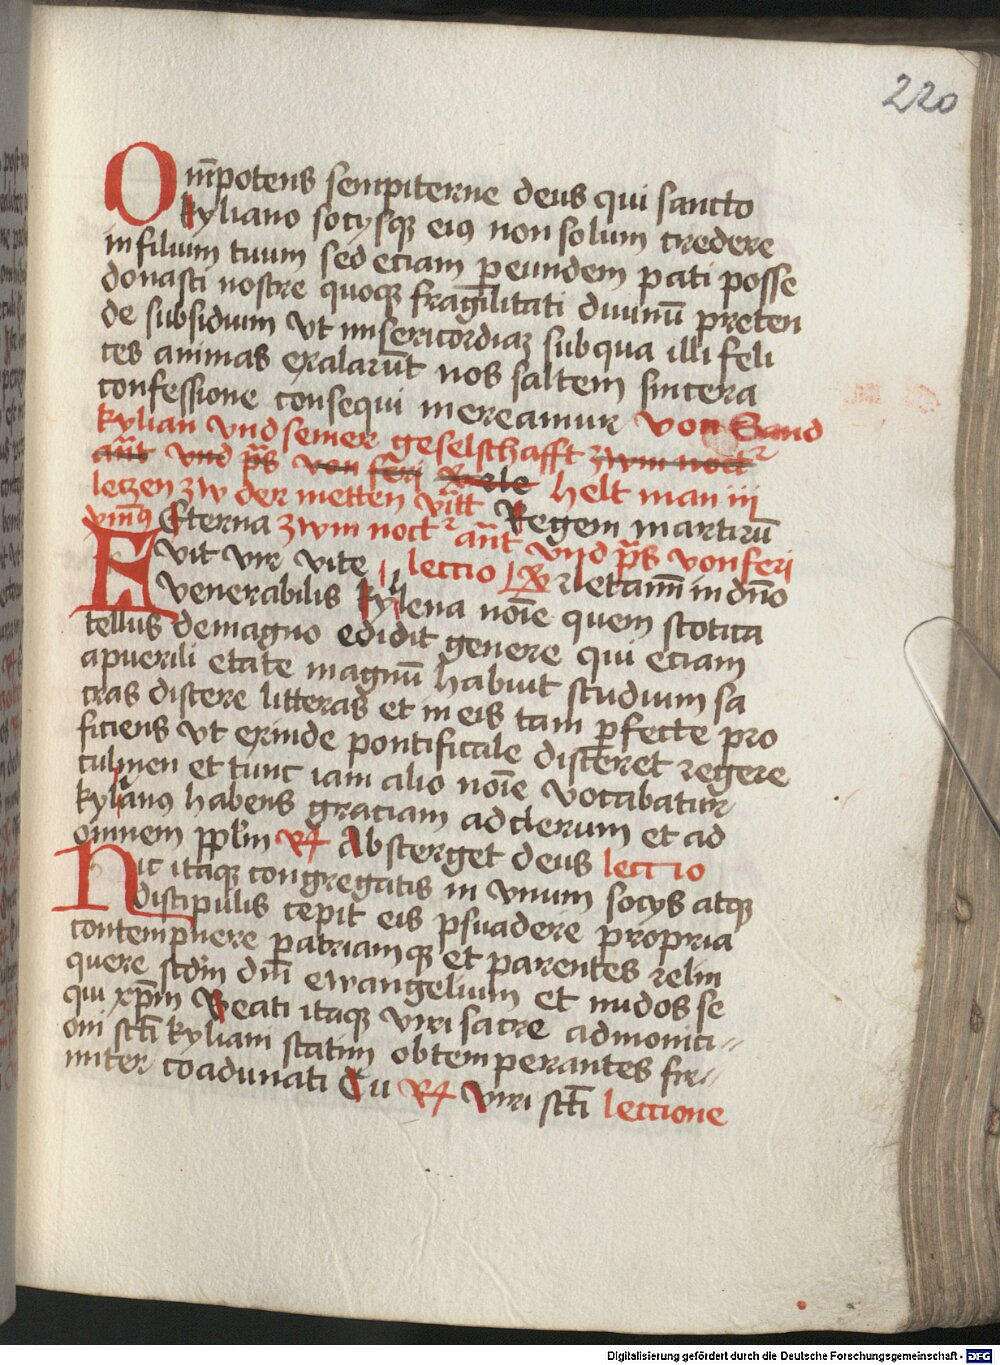 220
Om̄potens sempiterne deus qui sancto
kyliano socysqꝫ eiꝰ non solum credere
in filium tuum sed eciam ꝑ eundem pati posse
donasti nostre quoqꝫ fragilitati diuinū preten
de subsidium vt misericordiaꝫ sub qua illi feli
ces animas exalarūt nos saltem sincera
confessione consequi mereamur von Sand
kylian vnd seiner geselschafft zwm noctʳ
an̄t vnd p̄s von feri
leczen zw der metten vītt helt man iii
ymn̄ꝰ Eterna zwm noctʳ an̄t Regem martirū
vnd p̄s von feri
Fvit vir vite lectio ℟ letam̄ in dn̄o
venerabilis kylena noīe quem scotica
tellus de magno edidit genere qui eciam
a puerili etate magnū habuit studium sa
cras discere litteras et in eis tam ꝑfecte pro
ficiens vt exinde pontificale disceret regere
culmen et tunc iam alio noīe vocabatur
kylianꝰ habens graciam ad clerum et ad
omnem pp̄lm ℟ Absterget deus lectio
Hic itaqꝫ congregatis in vnum socys atqꝫ
discipulis cepit eis ꝑsuadere propria
contempnere patriamqꝫ et parentes relin
quere scd̄m dn̄i ewangelium et nudos se
qui xp̄m Beati itaqꝫ viri sacre admonici
oni sct̄i kyliani statim obtemperantes fir
miter coadunati Tu ℟ Viri sct̄i leccione
Digitalisierung gefördert durch die Deutsche Forschungsgemeinschaft - DFG